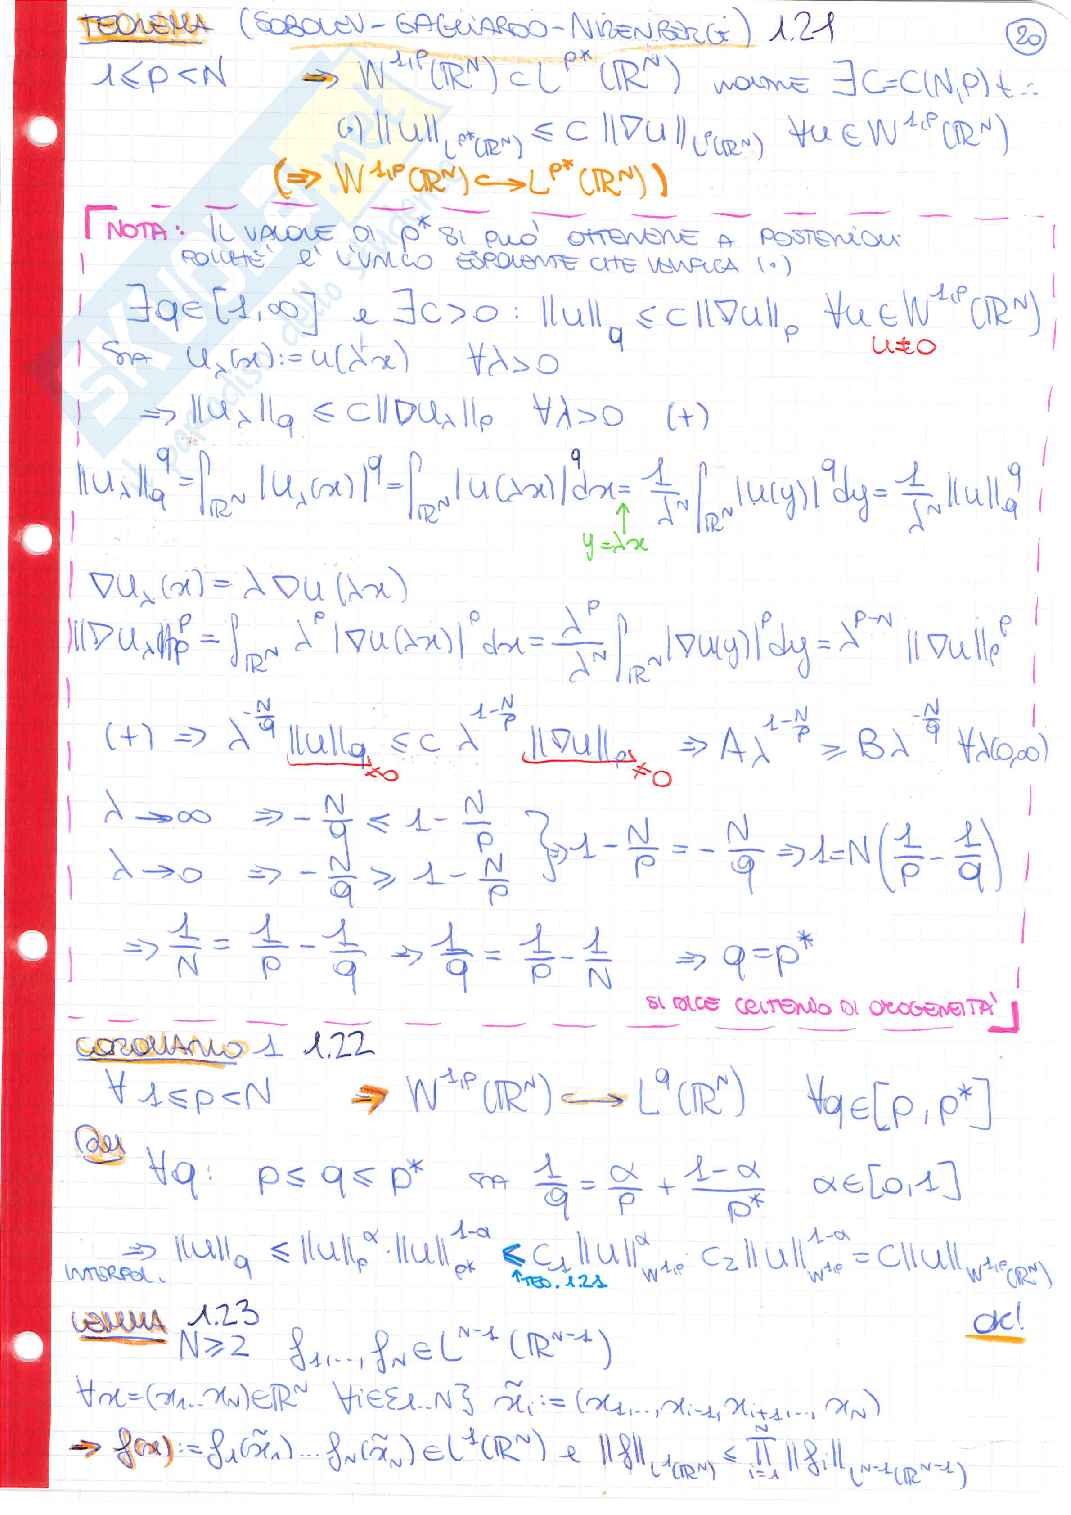 TEOREMA (SOBOLEV-GAGLIARDO-NIRENBERG) 1.21
20
1≤p<N ⇒ W^{1,p}(ℝ^N) ⊂ L^{p*}(ℝ^N) INOLTRE ∃C=C(N,p) t.c.
(•) ||u||_{L^{p*}(ℝ^N)} ≤ C ||∇u||_{L^p(ℝ^N)} ∀u∈W^{1,p}(ℝ^N)
(⇒ W^{1,p}(ℝ^N) ↪ L^{p*}(ℝ^N))
NOTA: IL VALORE DI p* SI PUO' OTTENERE A POSTERIORI
POICHE' E' L'UNICO ESPONENTE CHE VERIFICA (•)
∃q∈[1,∞] e ∃C>0 : ||u||_q ≤ C||∇u||_p ∀u∈W^{1,p}(ℝ^N)
u≢0
SIA u_λ(x):=u(λx) ∀λ>0
⇒ ||u_λ||_q ≤ C||∇u_λ||_p ∀λ>0 (+)
||u_λ||_q^q = ∫_{ℝ^N} |u_λ(x)|^q = ∫_{ℝ^N} |u(λx)|^q dx = 1/λ^N ∫_{ℝ^N} |u(y)|^q dy = 1/λ^N ||u||_q^q
y=λx
∇u_λ(x) = λ∇u(λx)
||∇u_λ||_p^p = ∫_{ℝ^N} λ^p |∇u(λx)|^p dx = λ^p/λ^N ∫_{ℝ^N} |∇u(y)|^p dy = λ^{p-N} ||∇u||_p^p
(+) ⇒ λ^{-N/q} ||u||_q ≤ C λ^{1-N/p} ||∇u||_p ⇒ Aλ^{1-N/p} ≥ Bλ^{-N/q} ∀λ(0,∞)
≠0 ≠0
λ→∞ ⇒ -N/q ≤ 1-N/p
λ→0 ⇒ -N/q ≥ 1-N/p } ⇒ 1-N/p = -N/q ⇒ 1=N(1/p - 1/q)
⇒ 1/N = 1/p - 1/q ⇒ 1/q = 1/p - 1/N ⇒ q=p*
SI DICE CRITERIO DI OMOGENEITA'
COROLLARIO 1 1.22
∀ 1≤p<N ⇒ W^{1,p}(ℝ^N) ↪ L^q(ℝ^N) ∀q∈[p,p*]
Dim ∀q: p≤q≤p* SIA 1/q = α/p + (1-α)/p* α∈[0,1]
⇒ ||u||_q ≤ ||u||_p^α · ||u||_{p*}^{1-α} ≤ C₁||u||_{W^{1,p}}^α · C₂||u||_{W^{1,p}}^{1-α} = C||u||_{W^{1,p}(ℝ^N)}
INTERPOL. ↑TEO. 1.21
LEMMA 1.23
ok!
N≥2 f_1,...,f_N ∈ L^{N-1}(ℝ^{N-1})
∀x=(x_1...x_N)∈ℝ^N ∀i∈{1...N} x̃_i:=(x_1,...,x_{i-1},x_{i+1},...,x_N)
⇒ f(x):=f_1(x̃_1)...f_N(x̃_N) ∈ L^1(ℝ^N) e ||f||_{L^1(ℝ^N)} ≤ ∏_{i=1}^N ||f_i||_{L^{N-1}(ℝ^{N-1})}